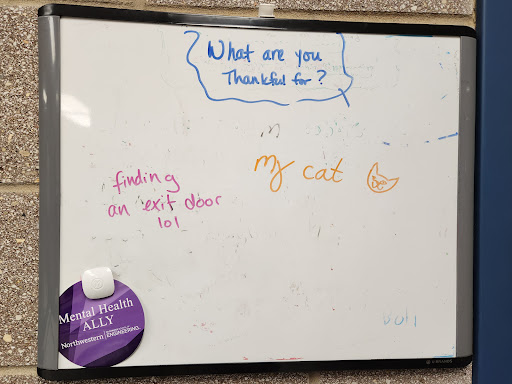 What are you
Thankful for?
my cat
finding
an exit door
lol
Mental Health
ALLY
Northwestern | ENGINEERING